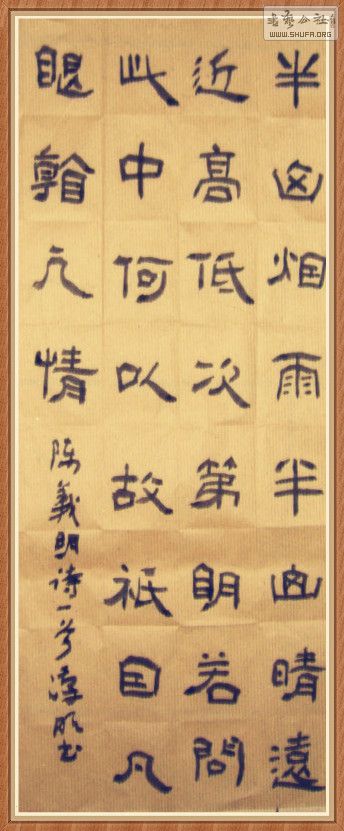 書藝公社
WWW.SHUFA.ORG
半囱烟雨半囱晴遠
近高低次第朙若問
此中何以故祇因凡
眼情
陈義明诗一首书